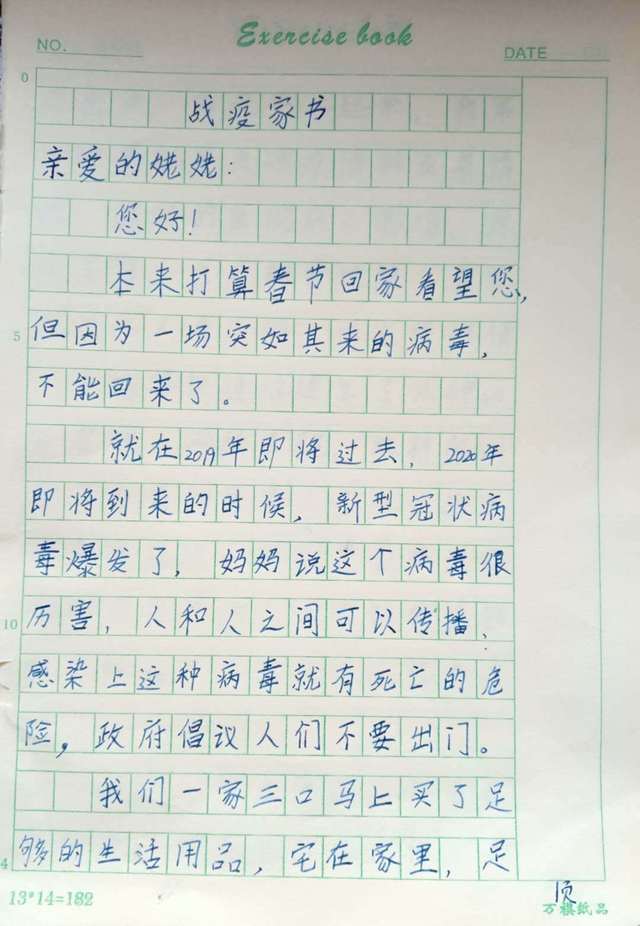 Exercise book
NO.
DATE
0
战疫家书
亲爱的姥姥:
您好!
本来打算春节回家看望您,
5
但因为一场突如其来的病毒,
不能回来了。
就在2019年即将过去,2020年
即将到来的时候,新型冠状病
毒爆发了,妈妈说这个病毒很
10
厉害,人和人之间可以传播,
感染上这种病毒就有死亡的危
险,政府倡议人们不要出门。
我们一家三口马上买了足
4
够的生活用品,宅在家里,足
13*14=182
万祺纸品